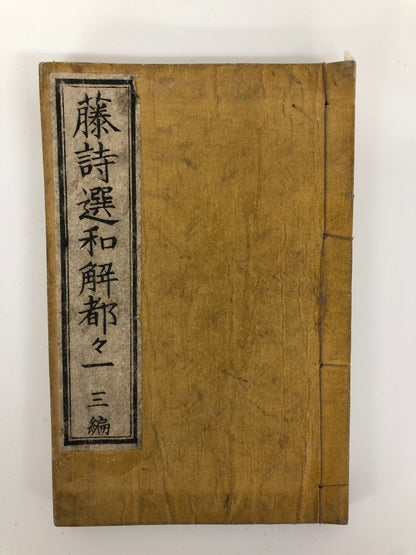 藤詩選和解都々一 三編